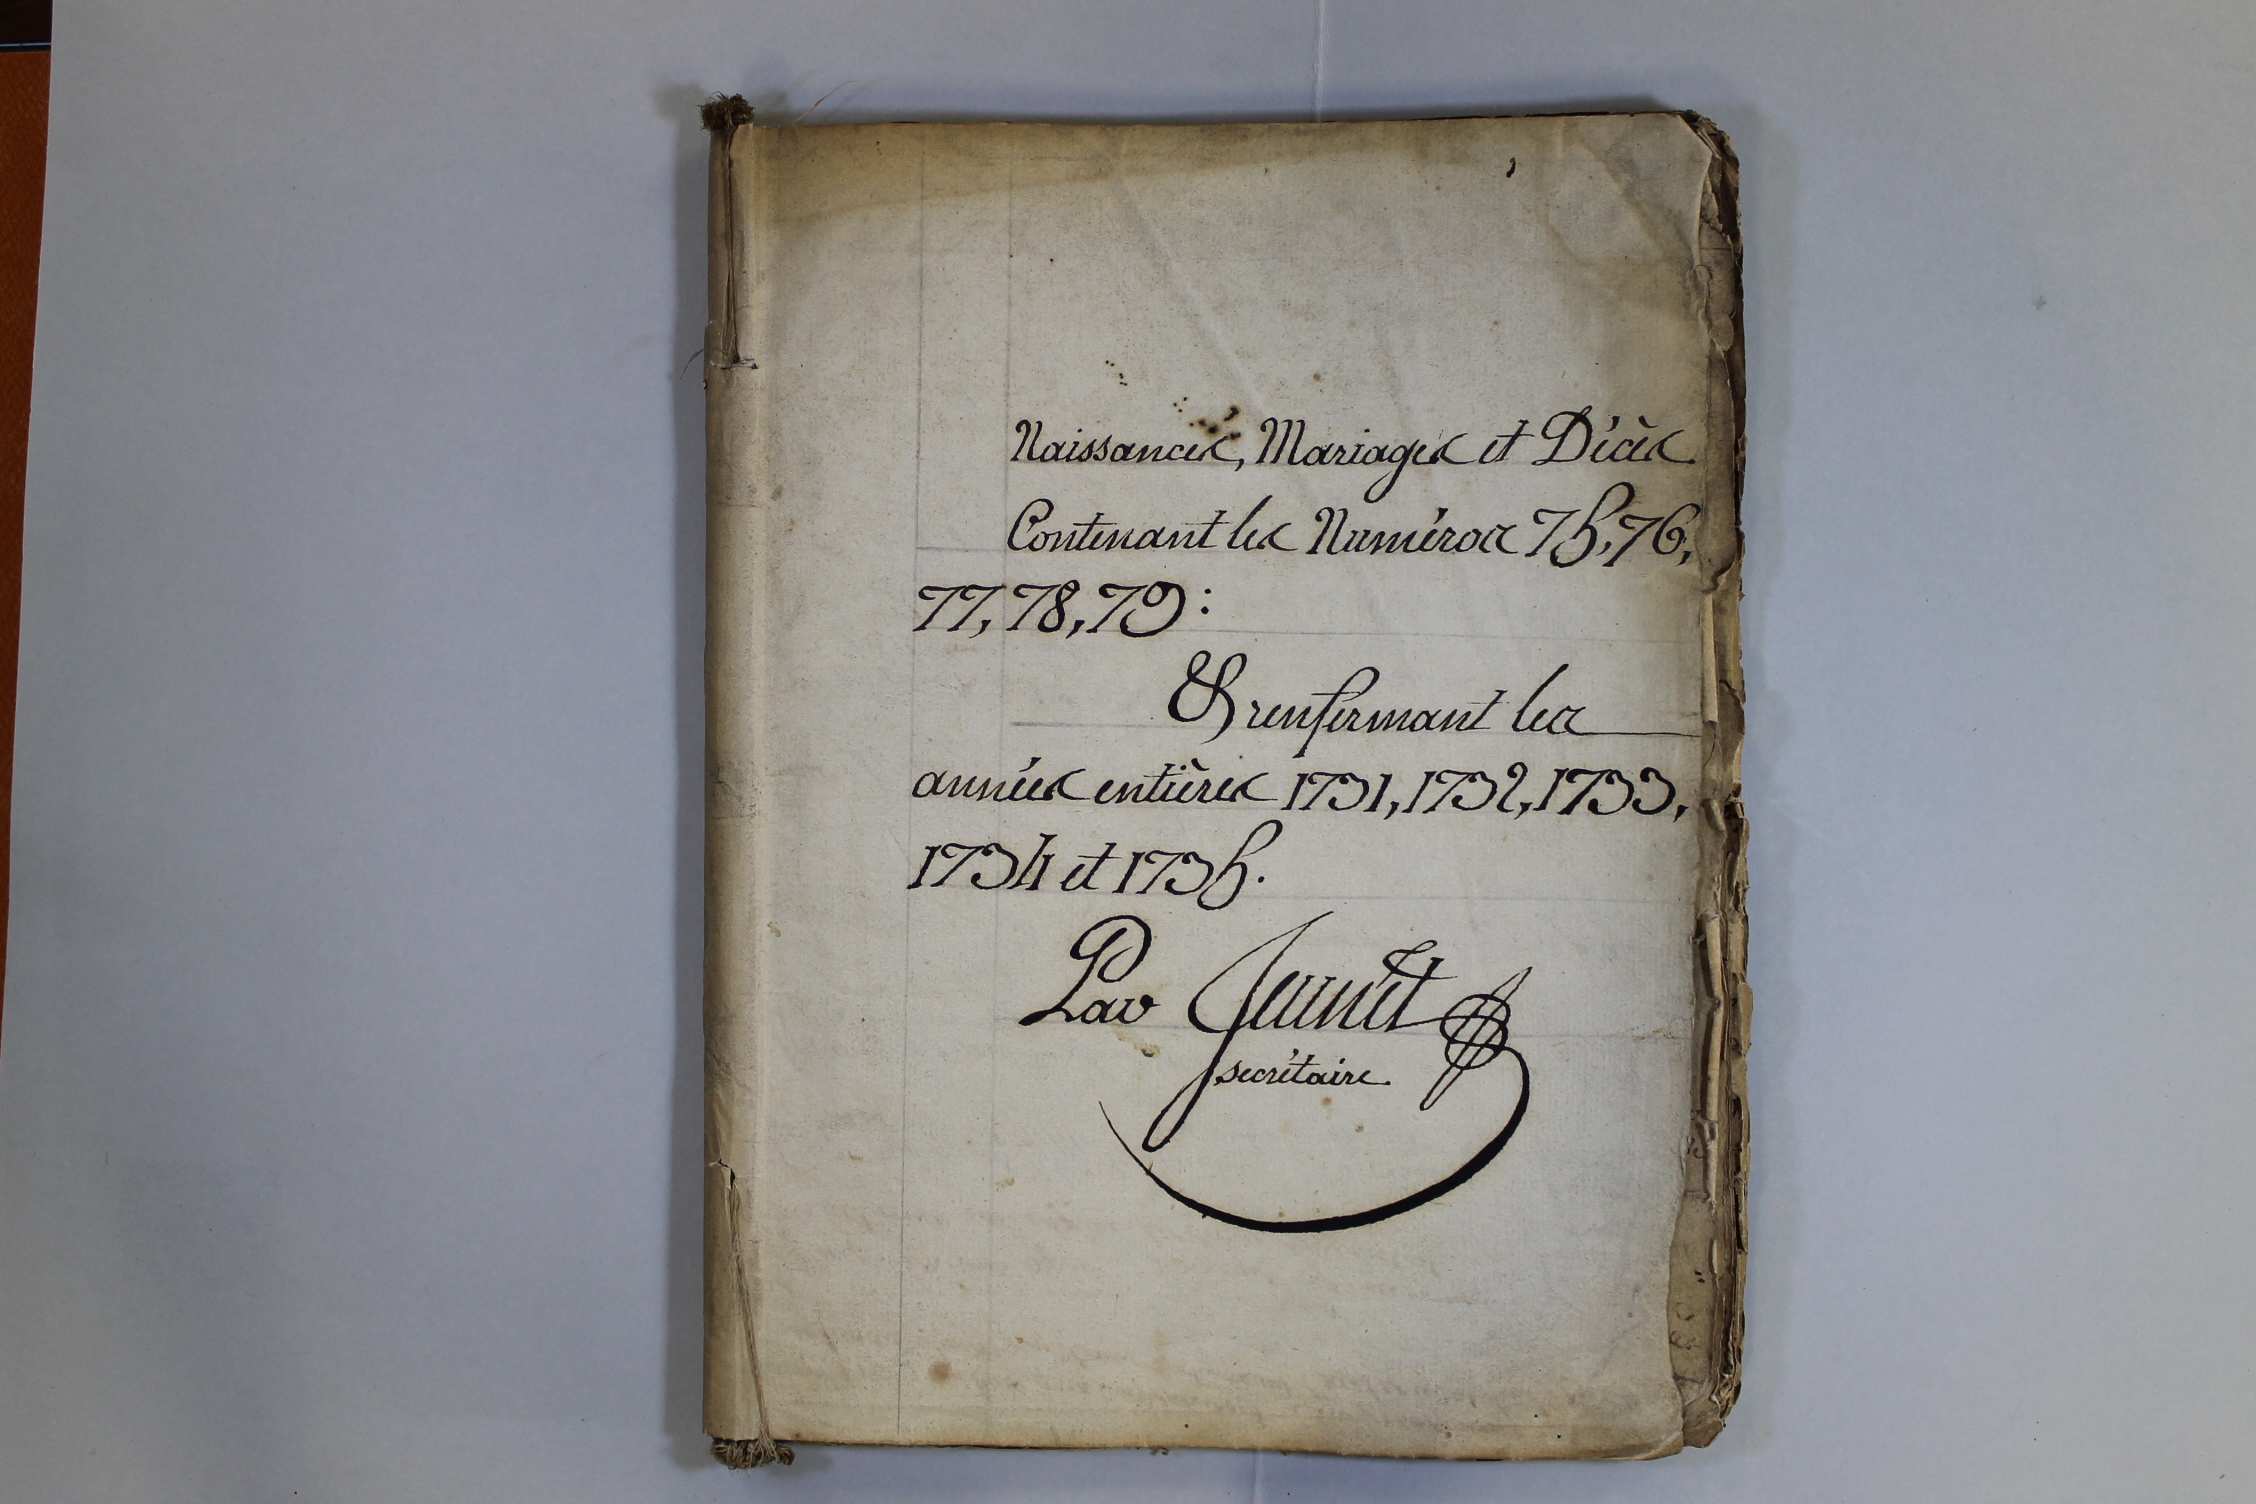 Naissances, Mariages et Décès
Contenant les Numéros 75, 76,
77, 78, 79:
& renfermant les
années entières 1731, 1732, 1733,
1734 et 1735.
Par
secrétaire